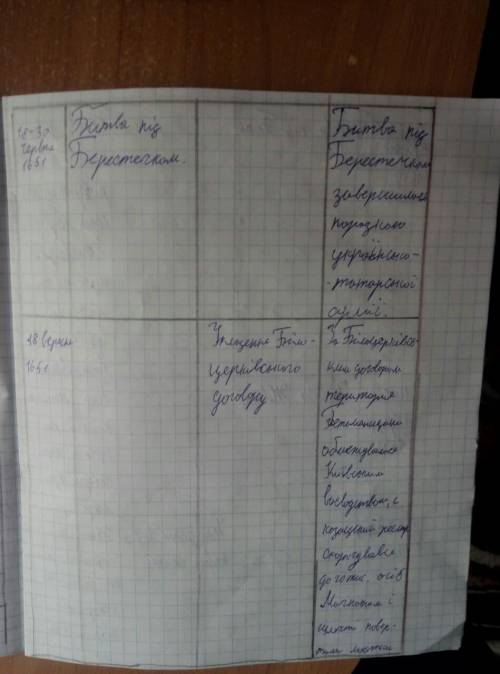 18-30
червня
1651
Битва під
Берестечком.
Битва під
Берестечком
завершилася
поразкою
українсько-
-татарської
армії.
18 верес
1651
Укладення Біло-
церківського
договору
За Білоцерківсь-
ким договором
територія
Гетьманщини
обмежувалася
Київським
воєводством, а
козацький реєстр
скорочувався
до 20 тис. осіб
Магнатам і
шляхті повер-
тали маєтки